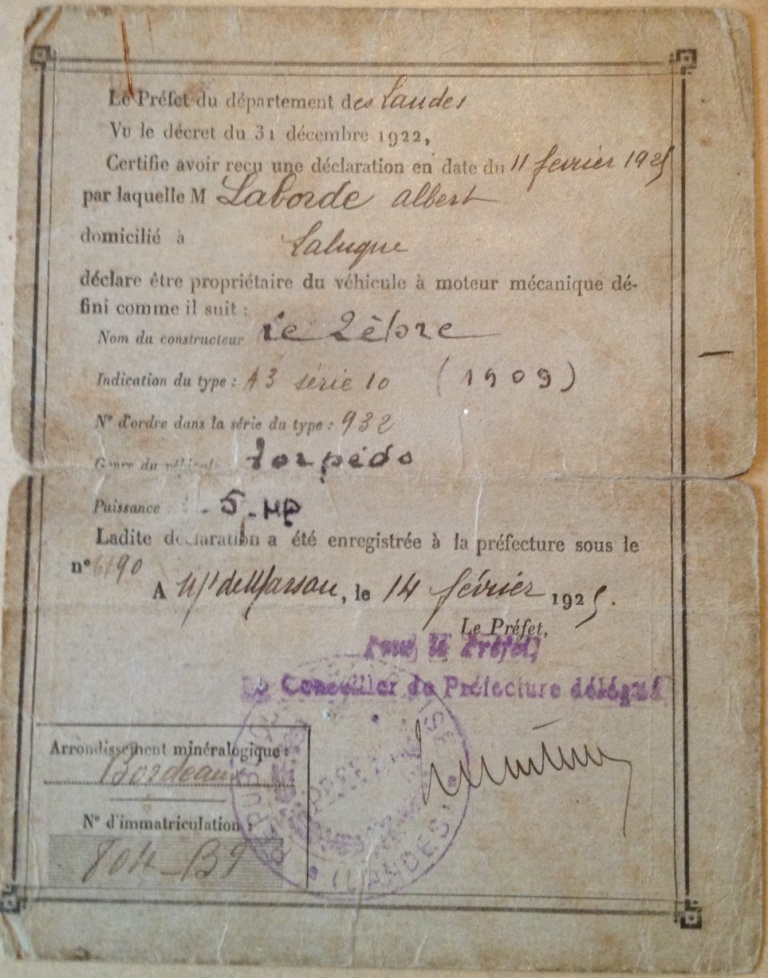 Le Préfet du département des Landes
Vu le décret du 31 décembre 1922,
Certifie avoir reçu une déclaration en date du 11 fevrier 1925
par laquelle M Laborde albert
domicilié à Laluque
déclare être propriétaire du véhicule à moteur mécanique dé-
fini comme il suit :
Nom du constructeur Le Zèbre
Indication du type : A3 série 10 (1909)
N° d'ordre dans la série du type : 932
Genre du véhicule torpédo
Puissance : 5 HP
Ladite déclaration a été enregistrée à la préfecture sous le
n° 6190
A Mt de Marsan, le 14 février 1925.
Le Préfet,
Pour le Préfet,
Le Conseiller de Préfecture délégué
Arrondissement minéralogique :
Bordeaux
N° d'immatriculation :
804-B9
REPUBLIQUE
(LANDES)